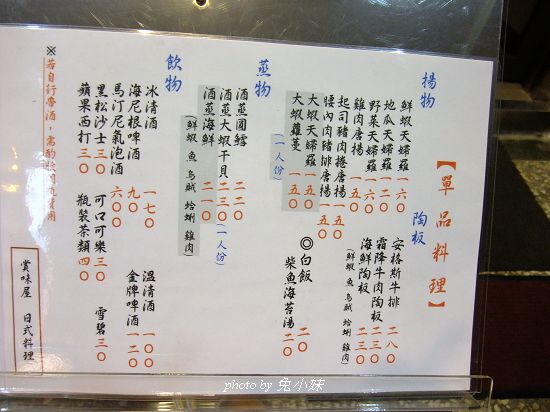 【單品料理】
揚物
鮮蝦天婦羅 一六○
地瓜天婦羅 一二○
野菜天婦羅 一六○
雞肉唐揚 一五○
起司豬肉捲唐揚 一五○
腰內肉豬排唐揚 一五○
大蝦天婦羅 一五○
大蝦蘿蔓 一五○
(一人份)
陶板
安格斯牛排 二八○
霜降牛肉陶板 二三○
海鮮陶板 二三○
(鮮蝦 魚 烏賊 蛤蜊 雞肉)
◎白飯 二○
柴魚海苔湯 二○
蒸物
酒蒸圓鱈 二二○
酒蒸大蝦干貝 二三○ (一人份)
酒蒸海鮮 二一○
(鮮蝦 魚 烏賊 蛤蜊 雞肉)
飲物
冰清酒 一七○
溫清酒 一○○
海尼根啤酒 九○
金牌啤酒 一二○
馬汀尼氣泡酒 六○○
黑松沙士 三○
可口可樂 三○
雪碧 三○
蘋果西打 三○
瓶裝茶類 四○
※若自行帶酒,需酌收
費用
賞味屋 日式料理
photo by 兔小妹